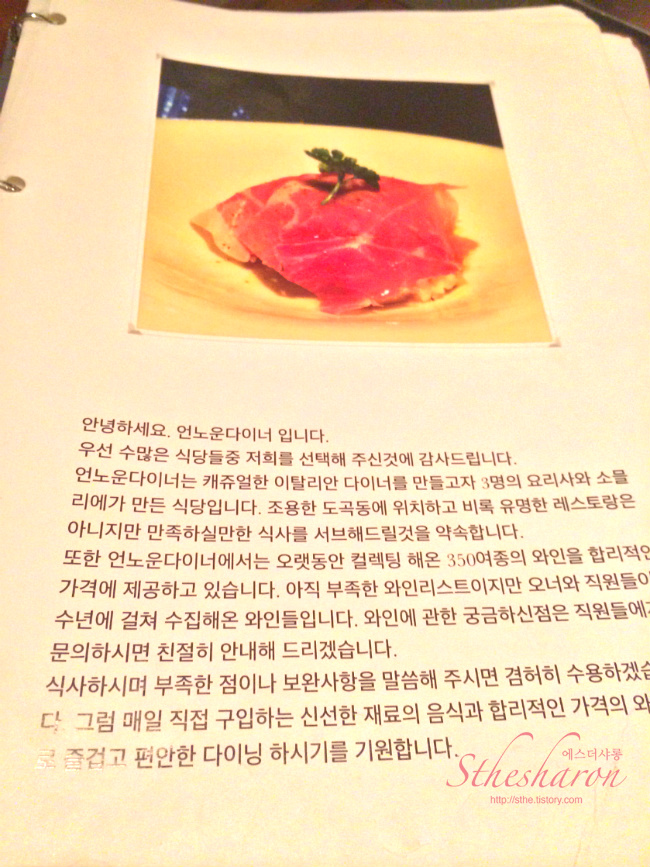 안녕하세요. 언노운다이너 입니다.
우선 수많은 식당들중 저희를 선택해 주신것에 감사드립니다.
언노운다이너는 캐쥬얼한 이탈리안 다이너를 만들고자 3명의 요리사와 소믈
리에가 만든 식당입니다. 조용한 도곡동에 위치하고 비록 유명한 레스토랑은
아니지만 만족하실만한 식사를 서브해드릴것을 약속합니다.
또한 언노운다이너에서는 오랫동안 컬렉팅 해온 350여종의 와인을 합리적인
가격에 제공하고 있습니다. 아직 부족한 와인리스트이지만 오너와 직원들이
수년에 걸쳐 수집해온 와인들입니다. 와인에 관한 궁금하신점은 직원들에게
문의하시면 친절히 안내해 드리겠습니다.
식사하시며 부족한 점이나 보완사항을 말씀해 주시면 겸허히 수용하겠습
다. 그럼 매일 직접 구입하는 신선한 재료의 음식과 합리적인 가격의 와
로 즐겁고 편안한 다이닝 하시기를 기원합니다.
에스더샤롱
Sthesharon
http://sthe.tistory.com